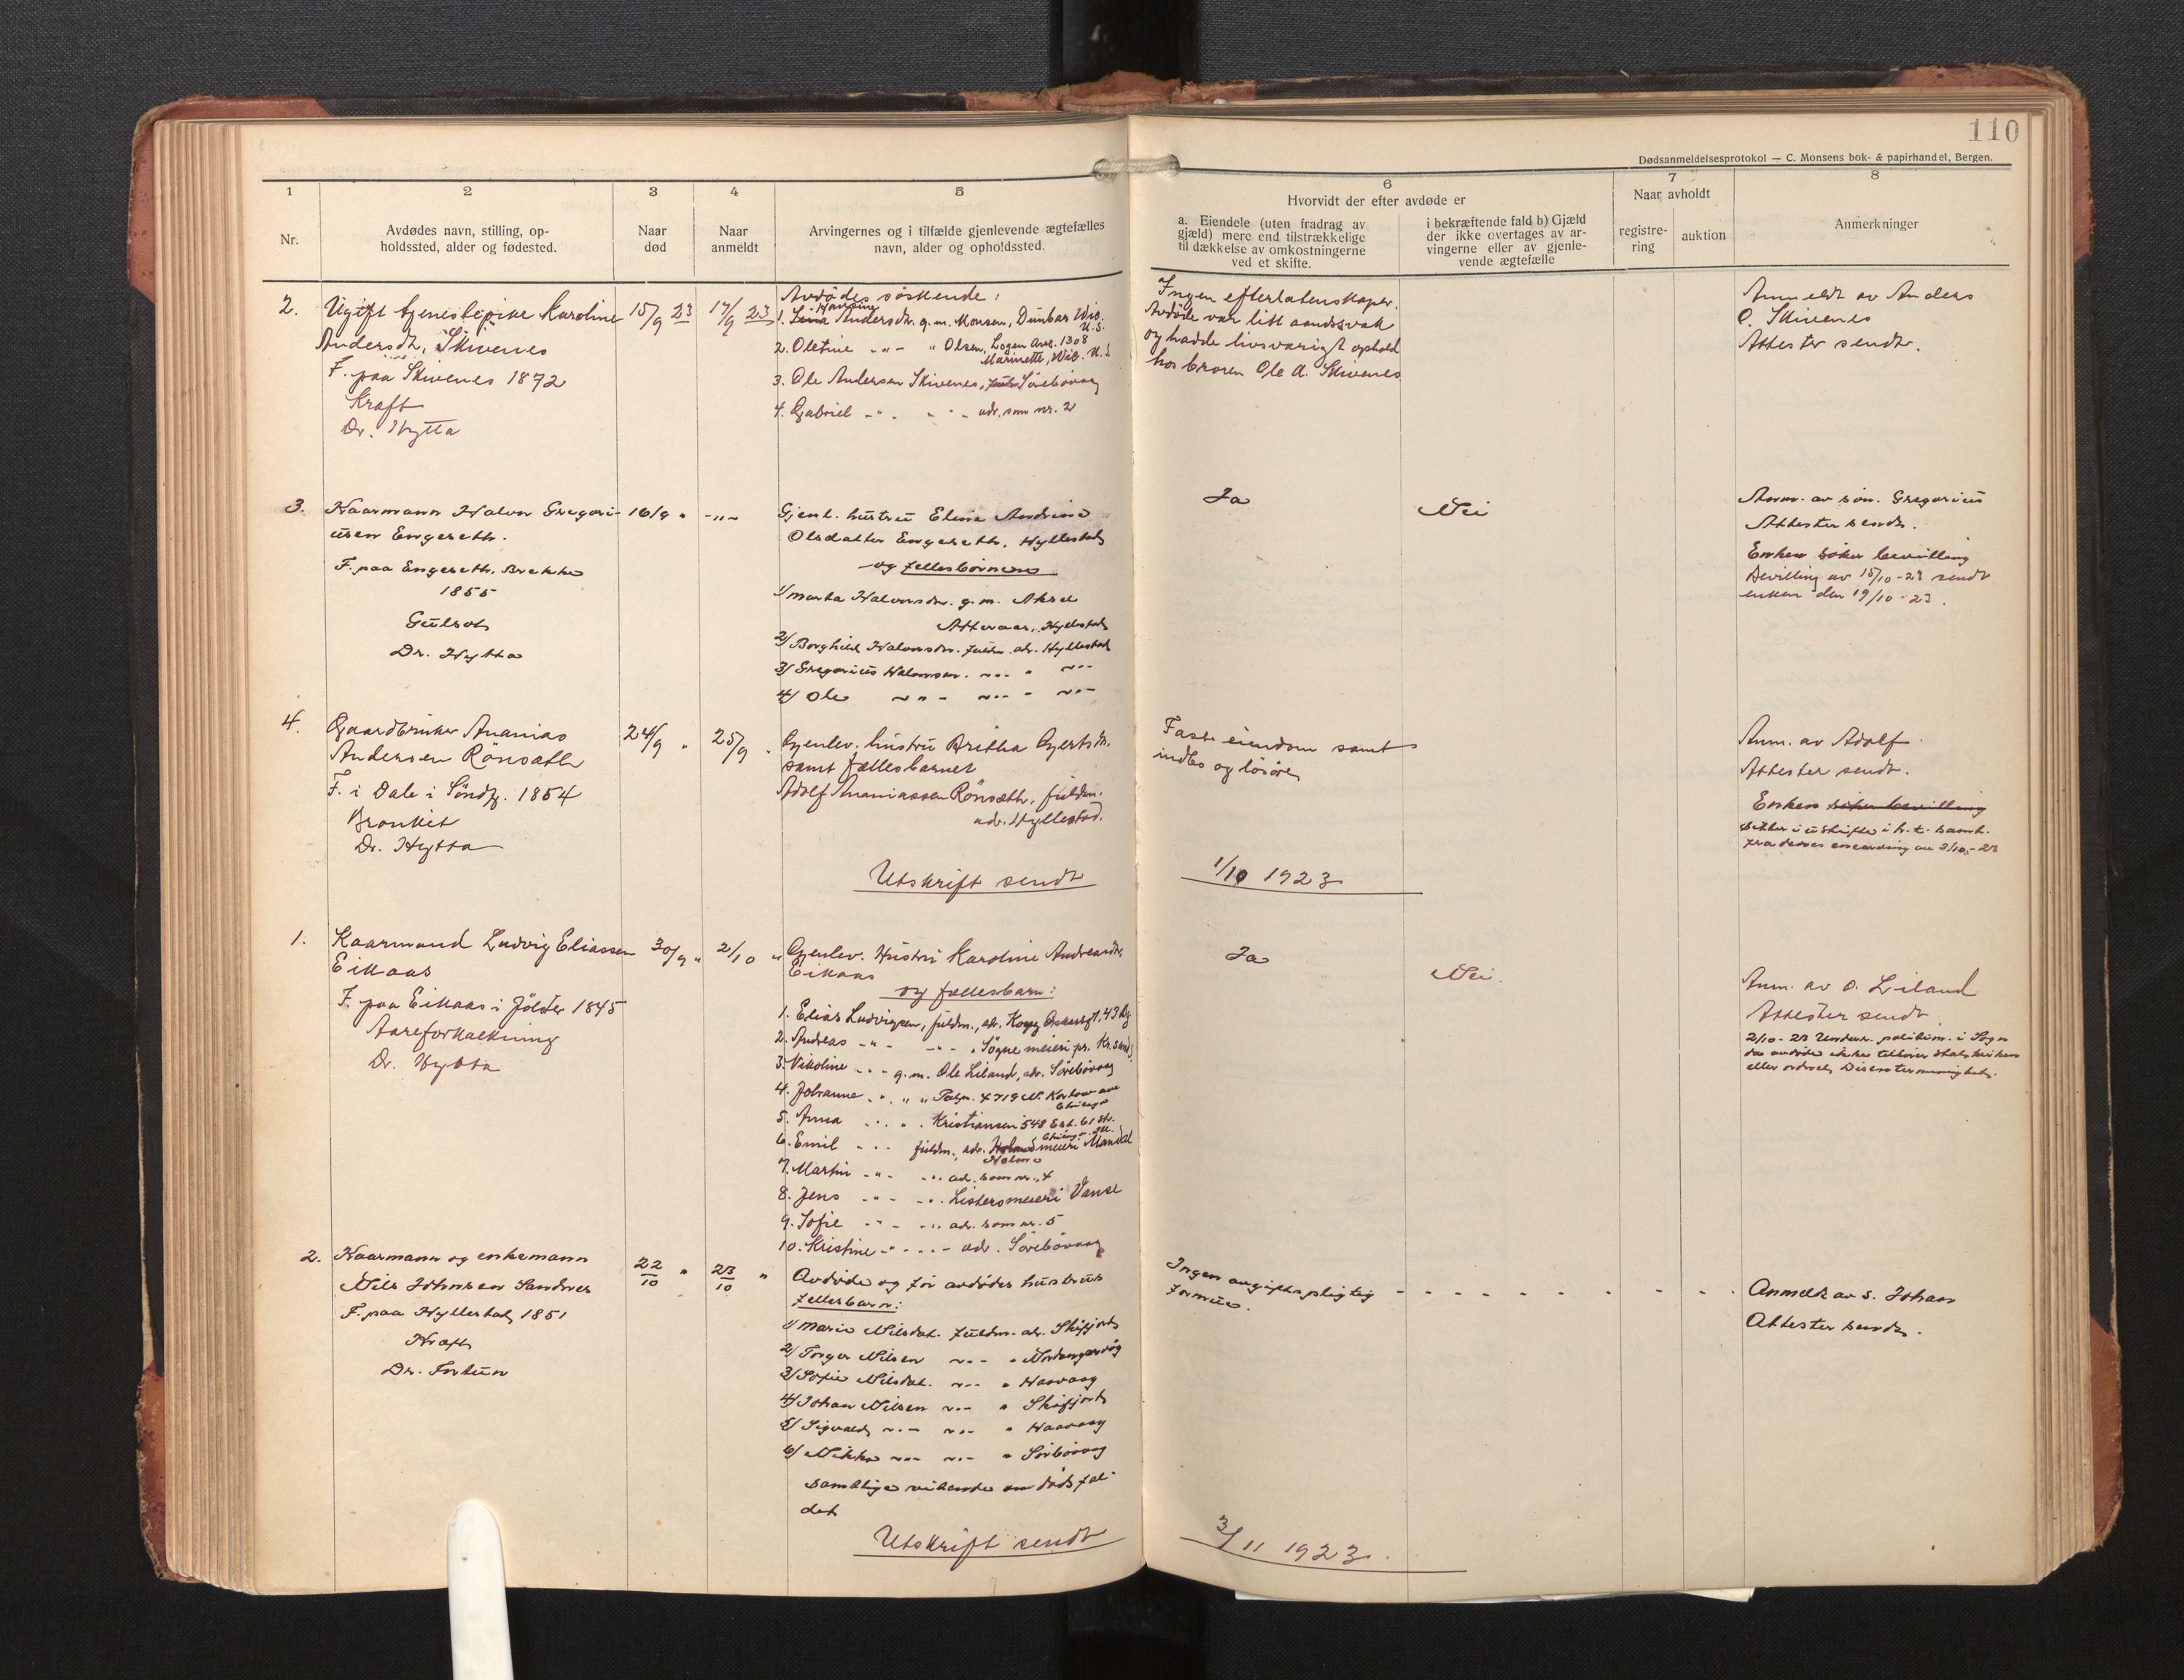 110
Dødsanmeldelsesprotokol — C. Monsens bok- & papirhandel, Bergen.
1
2
3
4
5
6
7
8
Nr.
Avdødes navn, stilling, op-
holdssted, alder og fødested.
Naar
død
Naar
anmeldt
Arvingernes og i tilfælde gjenlevende ægtefælles
navn, alder og opholdssted.
Hvorvidt der efter avdøde er
a. Eiendele (uten fradrag av
gjæld) mere end tilstrækkelige
til dækkelse av omkostningerne
ved et skifte.
i bekræftende fald b) Gjæld
der ikke overtages av ar-
vingerne eller av gjenle-
vende ægtefælle
Naar avholdt
registre-
ring
auktion
Anmerkninger
2.
Ugift tjenestepike Karoline
Andersdtr. Skivenes
F. paa Skivenes 1872
Kræft
Dr. Hytta
15/9 23
17/9 23
Avdødes søskende:
1. Hansine Andersdtr. g.m. Monsen, Dunbar Wis.
U.S.
2. Oletine -"- " Olsen, Logan Ave. 1308
Marinette, Wis. U.S
3. Ole Andersen Skivenes, Sørebøvaag
4. Gabriel -"- -"- adr. som nr. 2
Ingen efterlatenskaper.
Avdøde var litt aandssvak
og hadde livsvarigt ophold
hos broren Ole A. Skivenes
Anmeldt av Anders
O. Skivenes
Attester sendt.
3.
Kaarmann Halvor Gregori-
usen Engeseth.
F. paa Engeseth, Brekke
1855
Gulsot
Dr. Hytta
16/9 "
-"-
Gjenl. hustru Eline Andrine
Olsdatter Engeseth, Hyllestad
og fellesbørnene
1/ Marta Halvorsdtr. g.m. Aksel
Hyllestad
2/ Borghild Halvorsdtr. fuldm. adr. Hyllestad
3/ Gregorius Halvorsen. -"- " -"-
4/ Ole -"- -"- " -"-
Ja
Nei
Anm. av søn. Gregorius
Attester sendt.
Enken søker bevilling
Bevilling av 15/10-23 sendt
enken den 19/10-23.
4.
Gaardbruker Ananias
Andersen Rønseth
F. i Dale i Søndfj. 1854
Bronkit
Dr. Hytta
24/9 "
25/9 "
Gjenlev. hustru Britha Gjertsdtr.
samt fællesbarnet
Adolf Ananiassen Rønseth, fuldm.
adr. Hyllestad.
Fast eiendom samt
indbo og løsøre
Anm. av Adolf
Attester sendt.
Enken søker bevilling
sitter i uskifte i h.t. samt.
fra dennes enearving av 2/10-23
Utskrift sendt
1/10 1923
1.
Kaarmand Ludvig Eliassen
Eikaas
F. paa Eikaas i Jölster 1845
Aareforkalkning
Dr. Hytta
30/9 "
2/10 "
Gjenlev. Hustru Karoline Andreasdtr.
Eikaas
og fællesbarn:
1. Elias Ludvigsen, fuldm., adr. 43 Bg.
2. Andreas -"- -"- " Søgne meieri pr. Kr.sand
3. Nikoline -"- g.m. Ole Liland, adr. Sørebøvaag
4. Johanne -"- " " 4719 N. ave
Chicago
5. Anna -"- " Kristiansen 548 East. 61 Str.
Chicago Ill.
6. Emil -"- fuldm., adr. Holme meieri Mandal
7. Martin -"- -"- adr. som nr. 4
8. Jens -"- -"- Listersmeieri Vanse
9. Sofie -"- -"- adr. som nr. 5
10. Kristine -"- -"- adr. Sørebøvaag
Ja
Nei.
Anm. av O. Liland
Attester sendt
2/10-23 Underr. politim. i Sogn
da avdøde ikke tilhører statskirken
eller ordnet Dissentermenighet.
2.
Kaarmann og enkemann
Nils Johnsen Sandnes
F. paa Hyllestad 1851
Kræft
Dr. Fortun
22/10 "
23/10 "
Avdøde og før avdødes hustrus
fellesbarn:
1/ Marie Nilsdat. fuldm. adr. Skifjord
2/ Torger Nilsen -"- "
3/ Sofie Nilsdat. -"- " Haavaag
4/ Johan Nilsen -"- " Skifjord
5/ Sigvald -"- -"- " Haavaag
6/ Mikke -"- -"- " Sørbøvaag
samtlige vitende om dødsfal-
det
Ingen avgiftspligtig
formue.
Anmeldt av s. Johan
Attester sendt.
Utskrift sendt
3/11 1923.